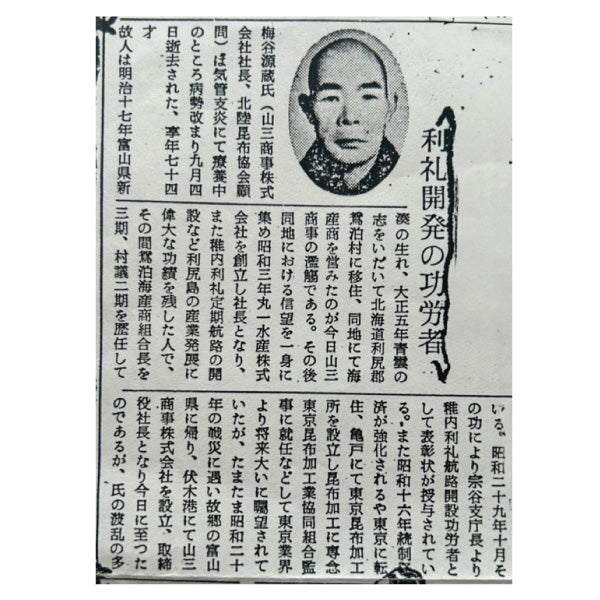 利礼開発の功労者
梅谷源蔵氏（山三商事株式
会社社長、北陸昆布協会顧
問）は気管支炎にて療養中
のところ病勢改まり九月四
日逝去された、享年七十四
才
故人は明治十七年富山県新
湊の生れ、大正五年青雲の
志をいだいて北海道利尻郡
鴛泊村に移住、同地にて海
産商を営みたのが今日山三
商事の濫觴である。その後
同地における信望を一身に
集め昭和三年丸一水産株式
会社を創立し社長となり、
また稚内利礼定期航路の開
設など利尻島の産業発展に
偉大な功績を残した人で、
その間鴛泊海産商組合長を
三期、村議二期を歴任して
いる。昭和二十九年十月そ
の功により宗谷支庁長より
稚内利礼航路開設功労者と
して表彰状が授与されてい
る。また昭和十六年統制経
済が強化されるや東京に転
住、亀戸にて東京昆布加工
所を設立し昆布加工に専念
東京昆布加工業協同組合監
事に就任などして東京業界
より将来大いに嘱望されて
いたが、たまたま昭和二十
年の戦災に遇い故郷の富山
県に帰り、伏木港にて山三
商事株式会社を設立、取締
役社長となり今日に至つた
のであるが、氏の波乱の多